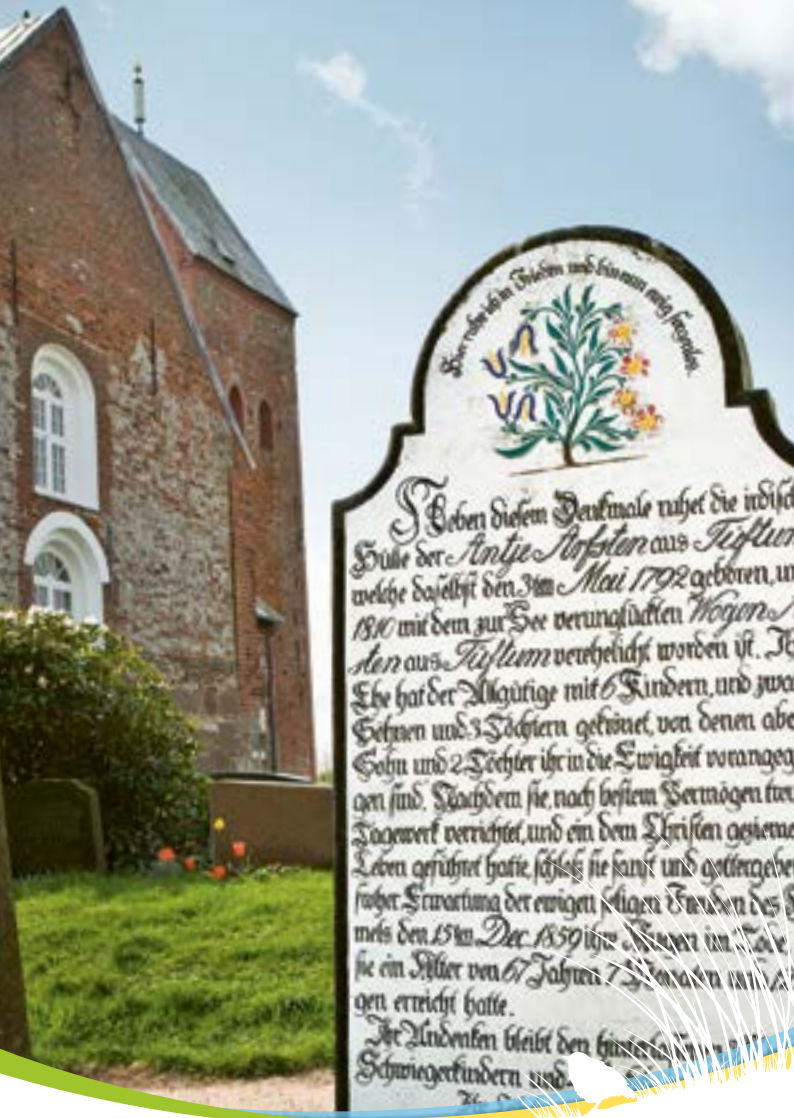 Hier ruhe ich in Frieden und bin nun ewig
Neben diesem Denkmale ruhet die irdisch
Hülle der Antje Arfsten aus Tüftum
welche daselbst den 3ten Mai 1792 geboren, un
1810 mit dem zur See verunglückten Wögen A
sten aus Tüftum verehelicht worden ist. Ih
Ehe hat der Allgütige mit 6 Kindern, und zwar
Sehnen und 3 Töchtern gekrönet, von denen abe
Sohn und 2 Töchter ihr in die Ewigkeit vorangega
gen sind. Nachdem sie, nach bestem Vermögen treu
Tagewerk verrichtet, und ein dem Christen geziemen
Leben geführet hatte, schloß sie sanft und gottergeben
froher Erwartung der ewigen seligen Freuden des H
mels den 15ten Dec. 1859 ihre Augen im Tode
sie ein Alter von 67 Jahren 7 Monaten und 12
gen erreicht hatte.
Ihr Andenken bleibt den
Schwiegerkindern und